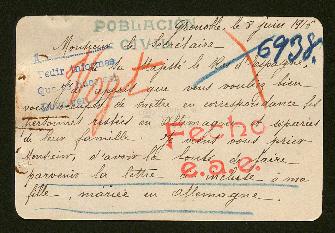 POBLACION
CIVIL
Grenoble, le 8 juin 1915
Monsieur le Secrétaire
6938.
A
Pedir informes
Que
de sa Majesté le Roi d'Espagne,
que vous voulez bien
vous de mettre en correspondance les
personnes restées en Allemagne et séparées
de leur famille. Je vous prier
Monsieur, d'avoir la bonté de faire
parvenir la lettre incluse à ma
fille, mariée en Allemagne.
Fecho
e.a.e.